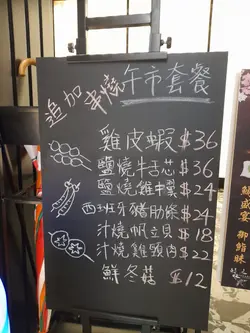 追加串燒
午市套餐
雞皮蝦 $36
鹽燒牛舌芯 $36
鹽燒雞中翼 $24
西班牙豬肋條 $24
汁燒帆立貝 $18
汁燒雞頸肉 $22
鮮冬菇 $12